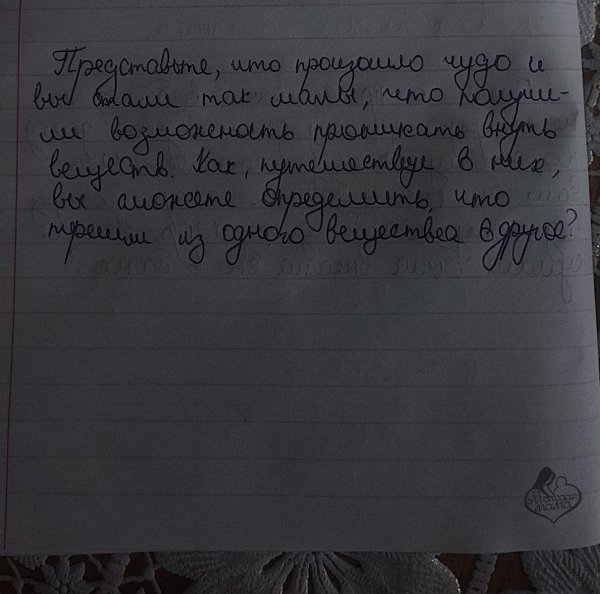 Представьте, что произошло чудо и
вы стали так малы, что получи-
ли возможность проникать внутрь
веществ. Как, путешествуя в них,
вы сможете определить, что
перешли из одного вещества в другое?